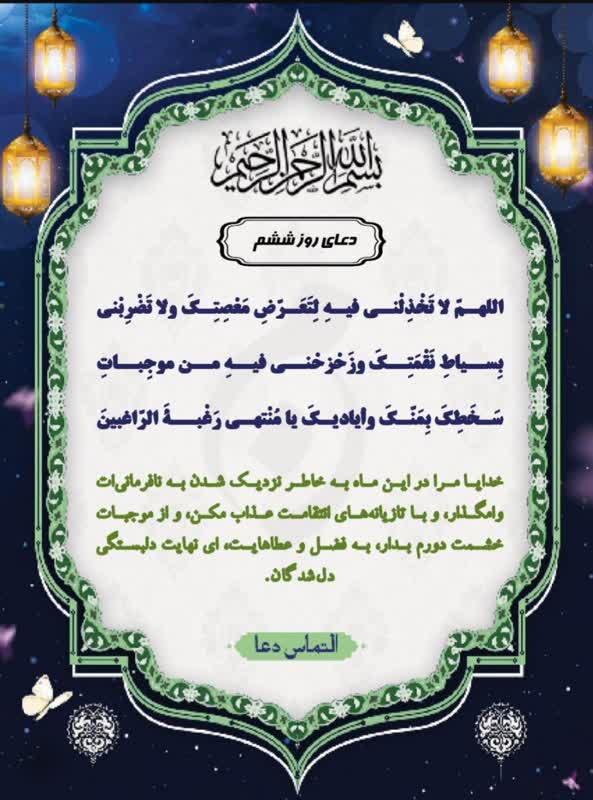 بسم الله الرحمن الرحیم
دعای روز ششم
اللهمّ لا تَخْذِلْنی فیهِ لِتَعَرّضِ مَعْصِتِکَ ولا تَضْرِبْنی
بِسیاطِ نَقْمَتِکَ وزَحْزحْنی فیهِ من موجِباتِ
سَخَطِکَ بِمَنّکَ وأیادیکَ یا مُنْتهی رَغْبةَ الرّاغبینَ
خدایا مرا در این ماه به خاطر نزدیک شدن به نافرمانی‌ات
وامگذار، و با تازیانه‌های انتقامت عذاب مکن، و از موجبات
خشمت دورم بدار، به فضل و عطاهایت، ای نهایت دلبستگی
دل‌شدگان.
التماس دعا